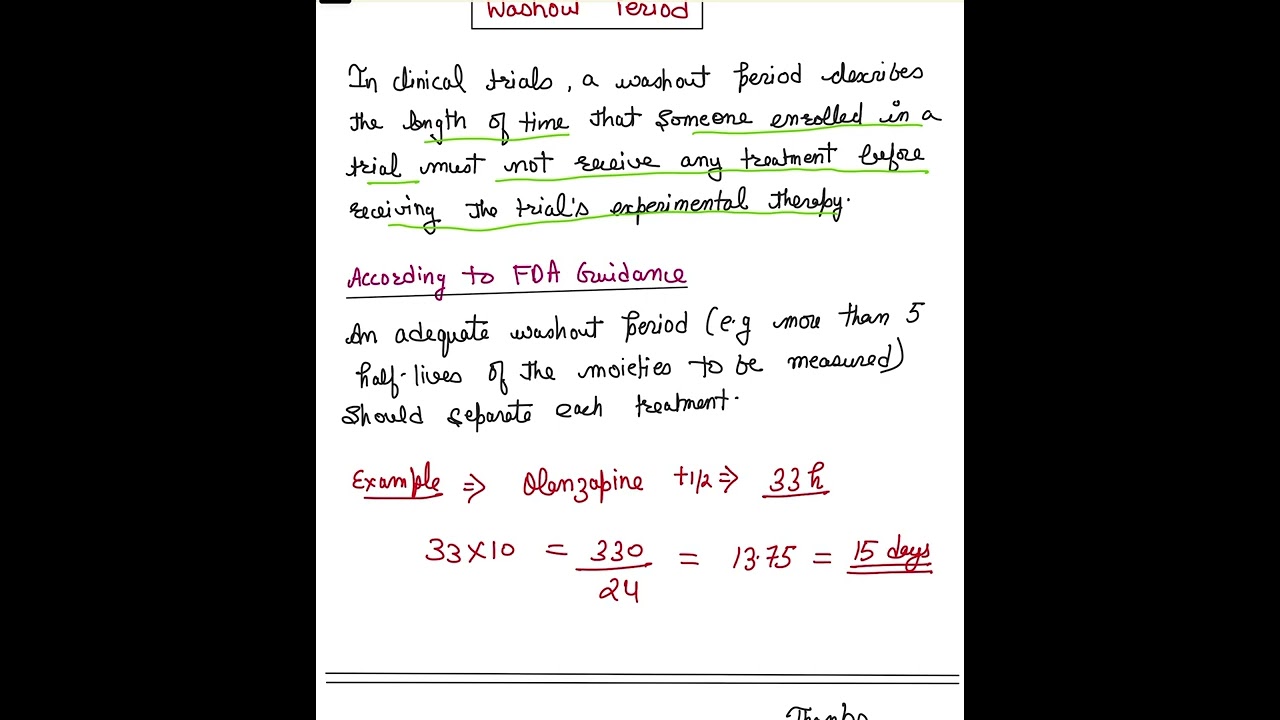 Washout Period
In clinical trials, a washout period describes
the length of time that someone enrolled in a
trial must not receive any treatment before
receiving the trial's experimental therapy.
According to FDA Guidance
An adequate washout period (e.g more than 5
half-lives of the moieties to be measured)
should separate each treatment.
Example ⇒ Olanzapine t1/2 ⇒ 33 h
33×10 = 330/24 = 13.75 = 15 days
Thanks